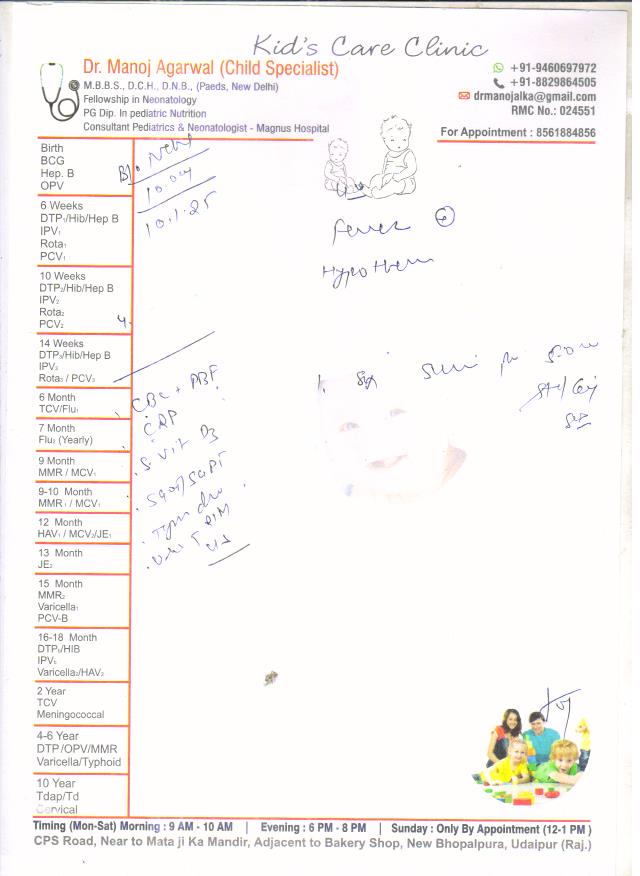 Kid's Care Clinic
Dr. Manoj Agarwal (Child Specialist)
M.B.B.S., D.C.H., D.N.B., (Paeds, New Delhi)
Fellowship in Neonatology
PG Dip. In pediatric Nutrition
Consultant Pediatrics & Neonatologist - Magnus Hospital
+91-9460697972
+91-8829864505
drmanojalka@gmail.com
RMC No.: 024551
For Appointment : 8561884856
Birth
BCG
Hep. B
OPV
6 Weeks
DTP₁/Hib/Hep B
IPV₁
Rota₁
PCV₁
10 Weeks
DTP₂/Hib/Hep B
IPV₂
Rota₂
PCV₂
14 Weeks
DTP₃/Hib/Hep B
IPV₃
Rota₃ / PCV₃
6 Month
TCV/Flu₁
7 Month
Flu₂ (Yearly)
9 Month
MMR / MCV₁
9-10 Month
MMR₁ / MCV₁
12 Month
HAV₁ / MCV₂/JE₁
13 Month
JE₂
15 Month
MMR₂
Varicella₁
PCV-B
16-18 Month
DTP₁/HIB
IPV₁
Varicella₂/HAV₂
2 Year
TCV
Meningococcal
4-6 Year
DTP/OPV/MMR
Varicella/Typhoid
10 Year
Tdap/Td
Cervical
10.1.25
CBC + PBF
CRP
S. Vit D3
SGOT/SGPT
Fever
1.
Timing (Mon-Sat) Morning : 9 AM - 10 AM | Evening : 6 PM - 8 PM | Sunday : Only By Appointment (12-1 PM )
CPS Road, Near to Mata ji Ka Mandir, Adjacent to Bakery Shop, New Bhopalpura, Udaipur (Raj.)